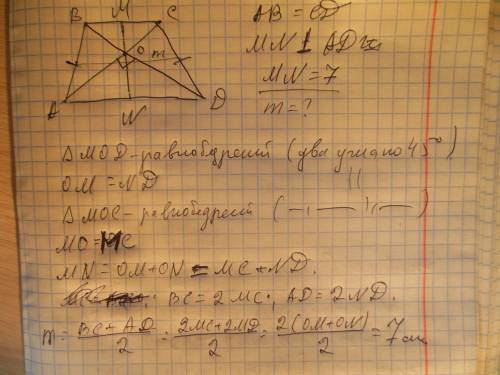 B M C
O m
A N D
AB = CD
MN ⊥ AD
MN = 7
m = ?
Δ MOD - равнобедрений (два угла по 45°)
OM = ND
Δ MOC - равнобедрений ( — ıı — )
MO = MC
MN = OM + ON = MC + ND.
BC = 2 MC; AD = 2 ND.
m = BC + AD / 2 = 2MC + 2MD / 2 = 2(OM + ON) / 2 = 7 см